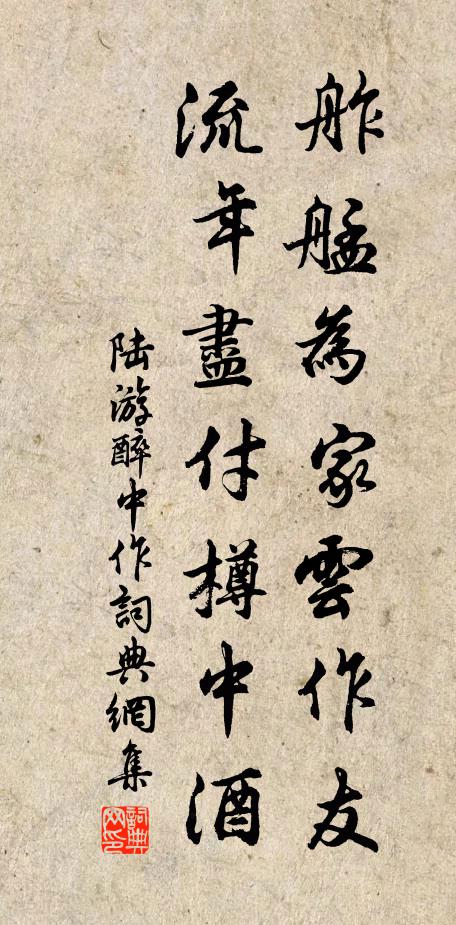 舴艋為家雲作友
流年盡付樽中酒
陸游醉中作詞典網集
詞典网印